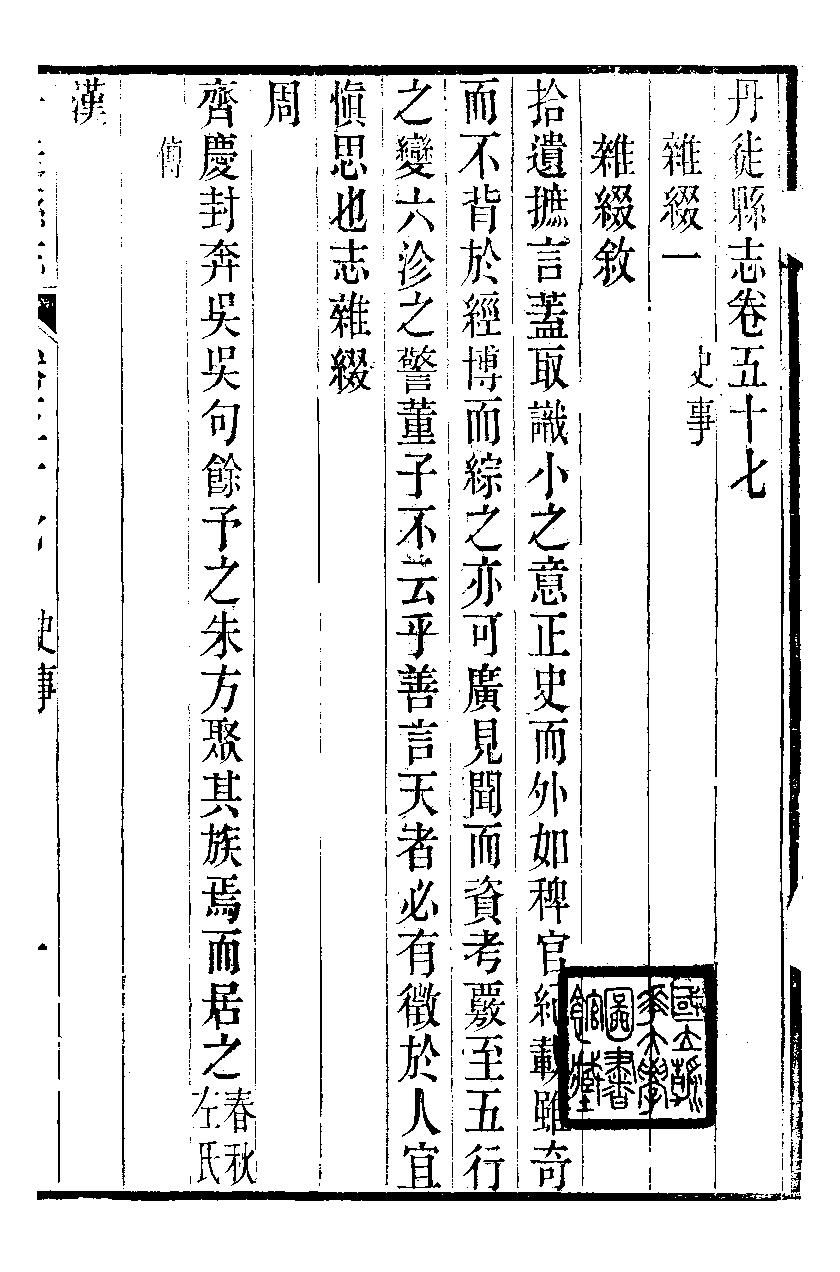 丹徒縣志卷五十七
雜綴一 史事
雜綴敘
拾遺摭言蓋取識小之意正史而外如稗官紀載雖奇
而不背於經博而綜之亦可廣見聞而資考覈至五行
之變六沴之警董子不云乎善言天者必有徵於人宜
慎思也志雜綴
周
齊慶封奔吳吳句餘予之朱方聚其族焉而居之春秋左氏
傳
漢
史事
國立
大學
圖書
館藏